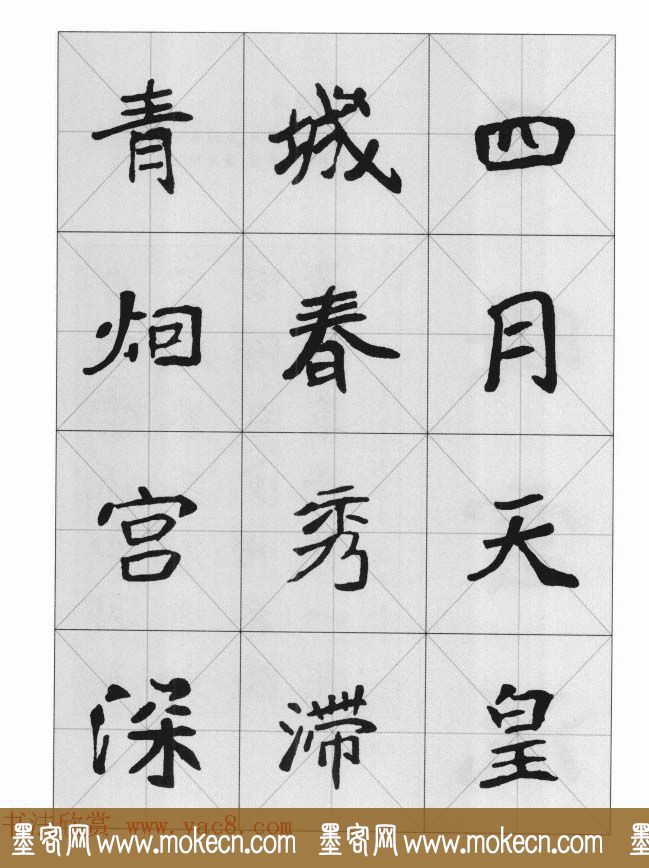 四月天皇
城春秀滞
青宫深
书法欣赏 www.yac8.com
墨客网 www.mokecn.com 墨客网 www.mokecn.com